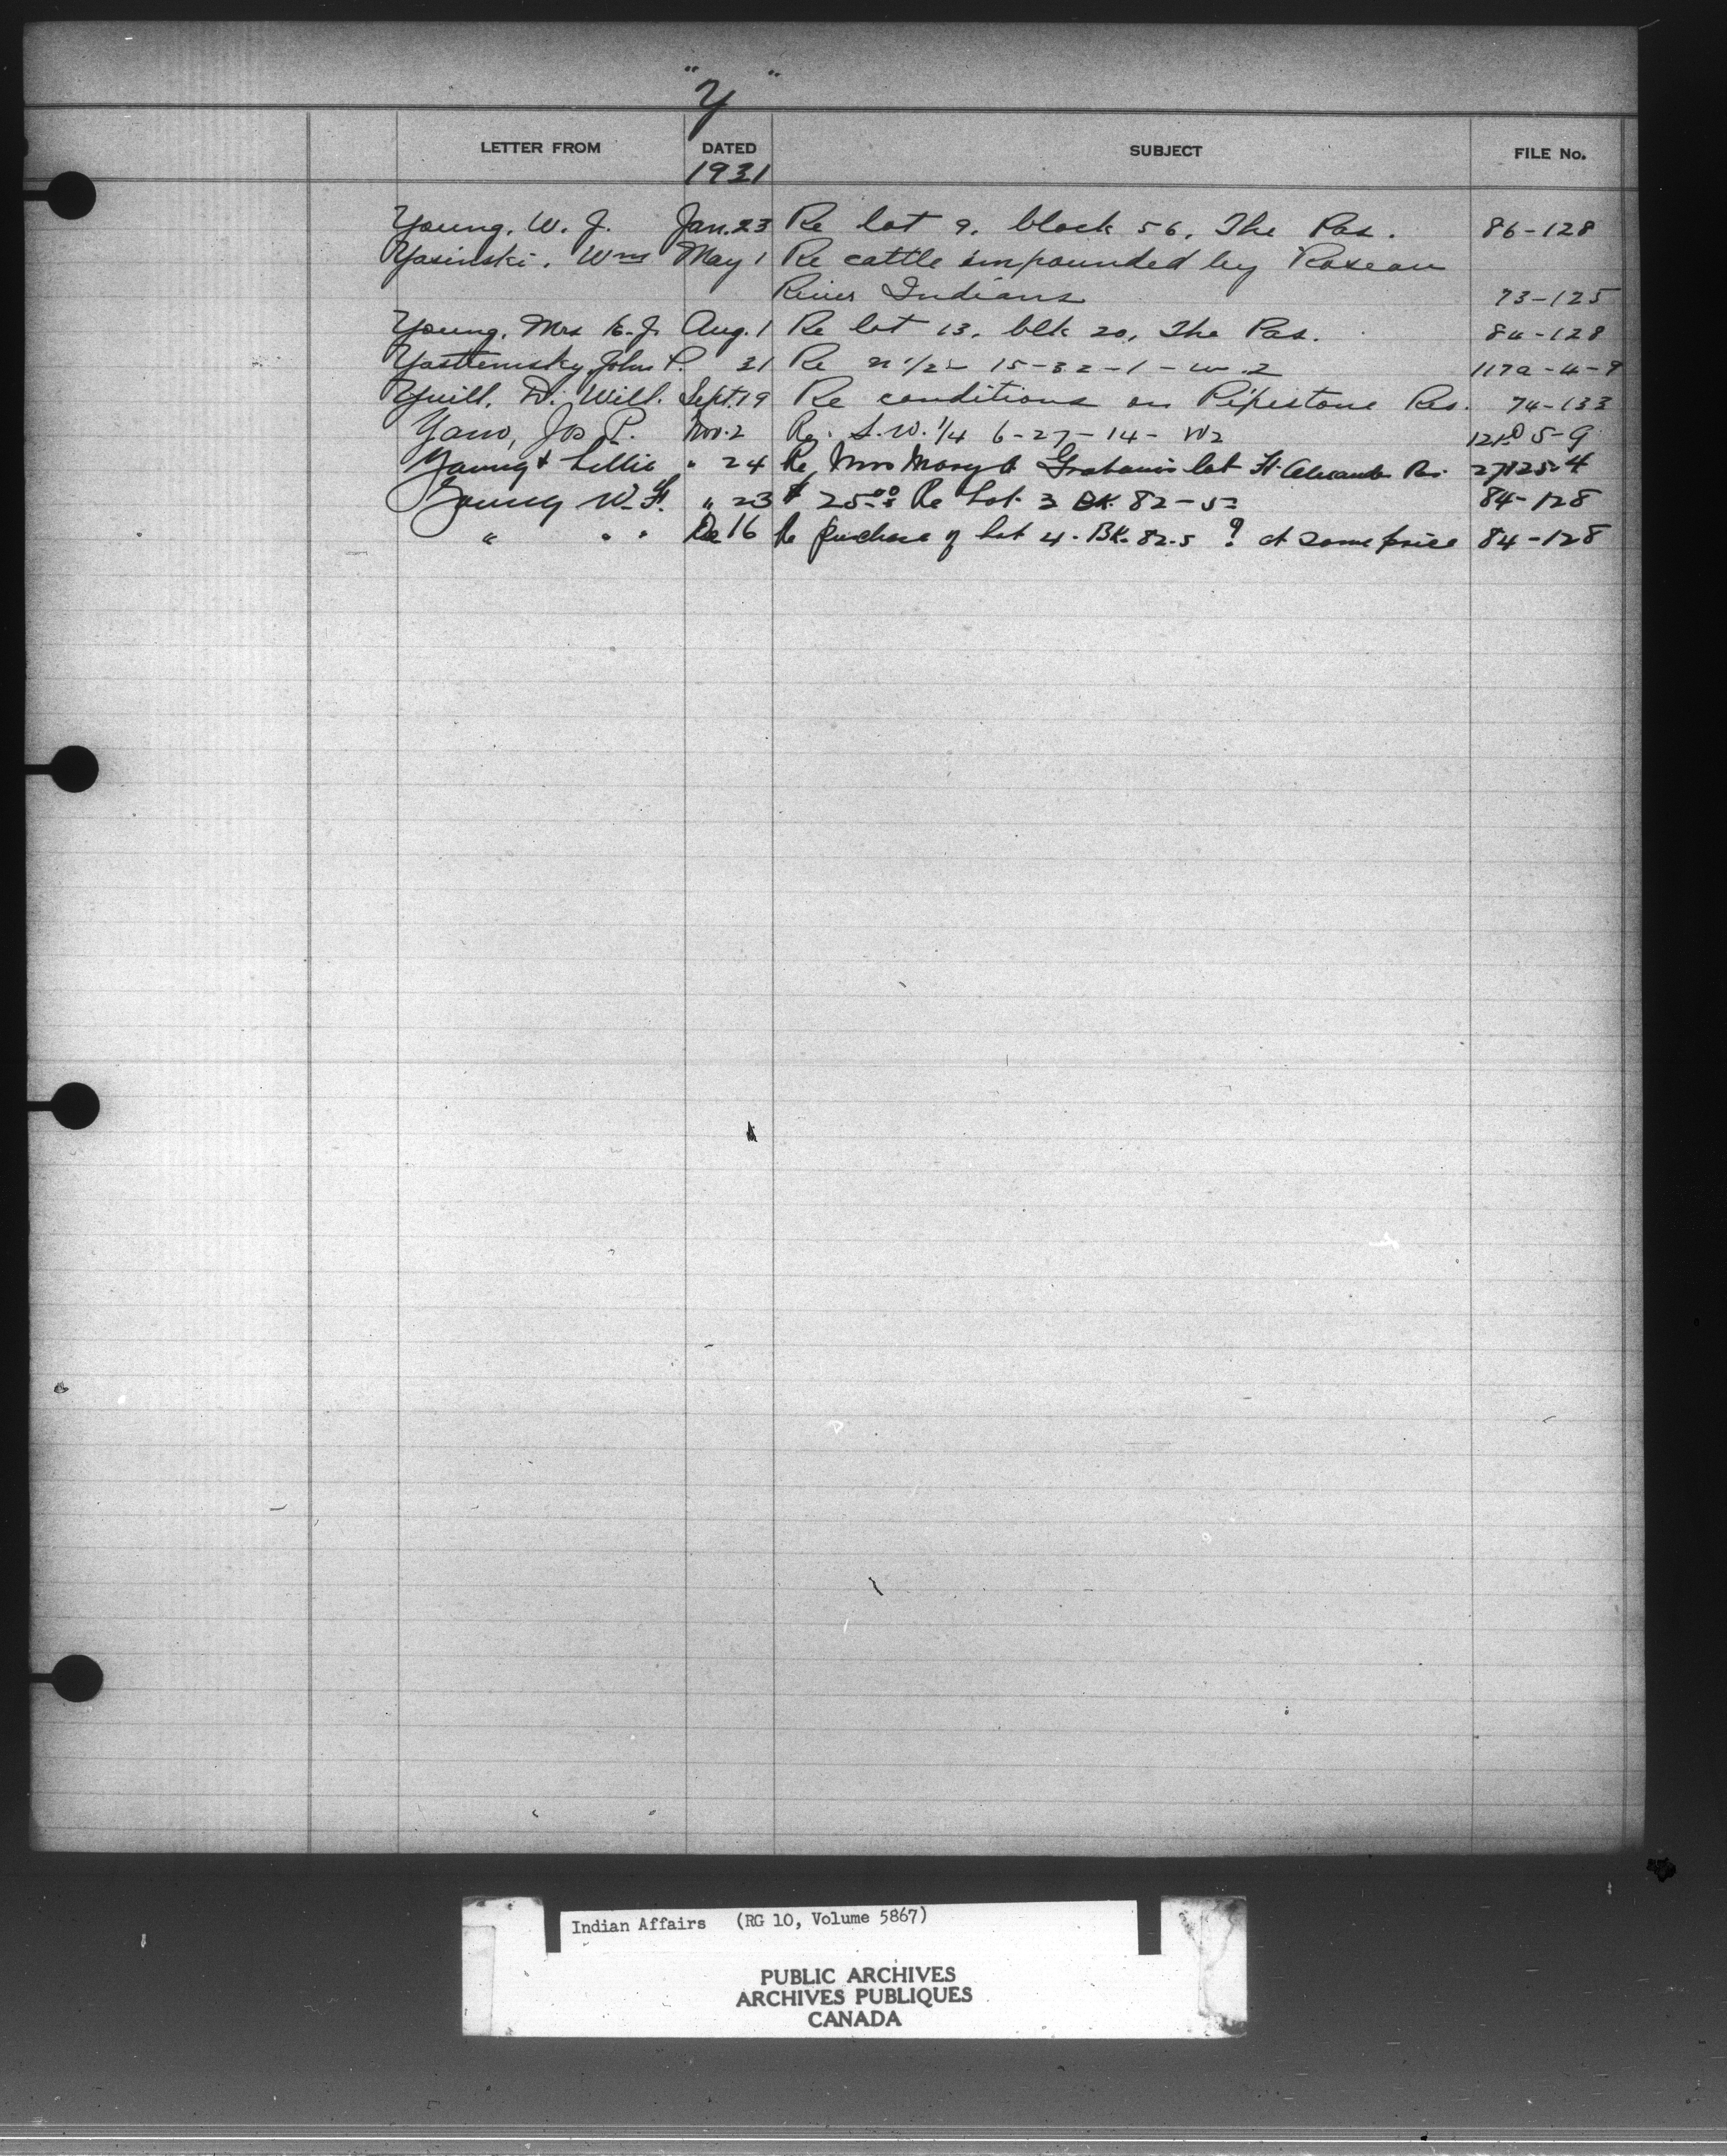 "Y"
LETTER FROM DATED SUBJECT FILE No.
1931
Young, W. J. Jan. 23 Re lot 9, block 56, The Pas. 86-128
Yasinski, Wm May 1 Re cattle impounded by Roseau
River Indians 73-125
Young, Mrs E. J. Aug. 1 Re lot 13, blk 20, The Pas. 84-128
John P. 31 Re n 1/2 15-32-1-w.2 117a-4-9
Yuill, D. Will. Sept. 19 Re conditions on Pipestone Res. 74-133
Yaw, Jos P. Nov. 2 Re. S.W. 1/4 6-27-14-W2 5-9
Young & Lillie " 24 Re Mrs Mary A Graham's lot Ft. Alexander Res.
Young W. H. " 23 $25.00 Re Lot 3 BK. 82-5 84-128
" " " Dec 16 Re purchase of lot 4. BK. 82.5 ? at same price 84-128
Indian Affairs (RG 10, Volume 5867)
PUBLIC ARCHIVES
ARCHIVES PUBLIQUES
CANADA